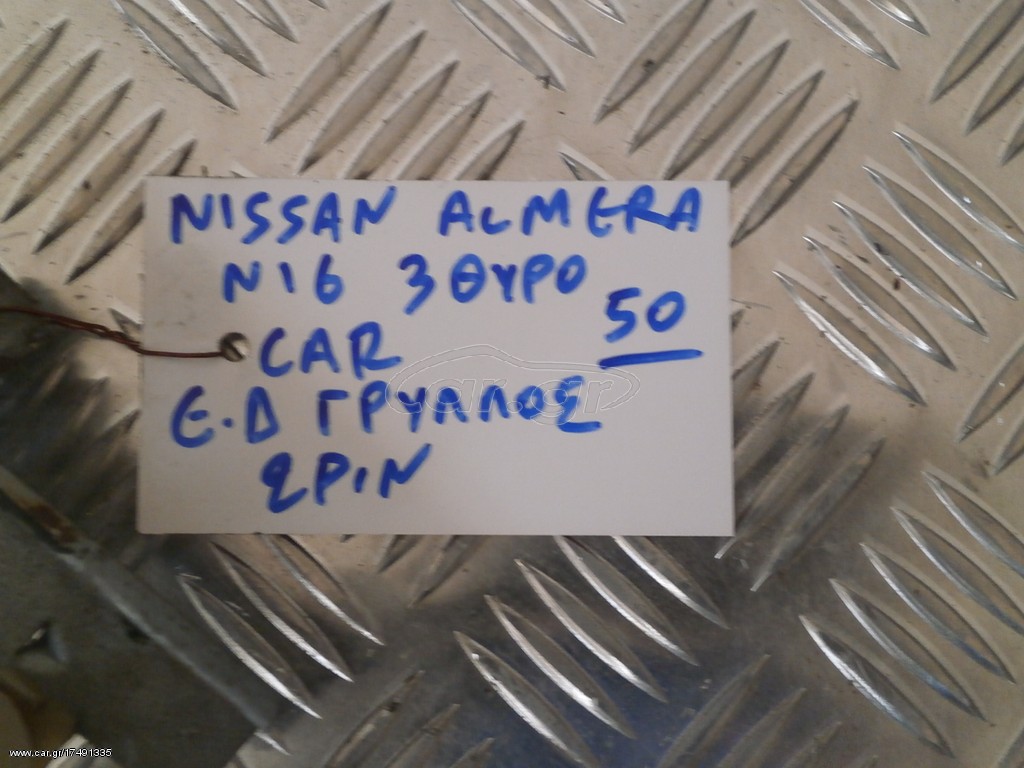 NISSAN ALMERA
N16 3ΘΥΡΟ
50
CAR
Ε.Δ ΓΡΥΛΛΟΣ
ΣΡΙΝ
car.gr
www.car.gr/17491335